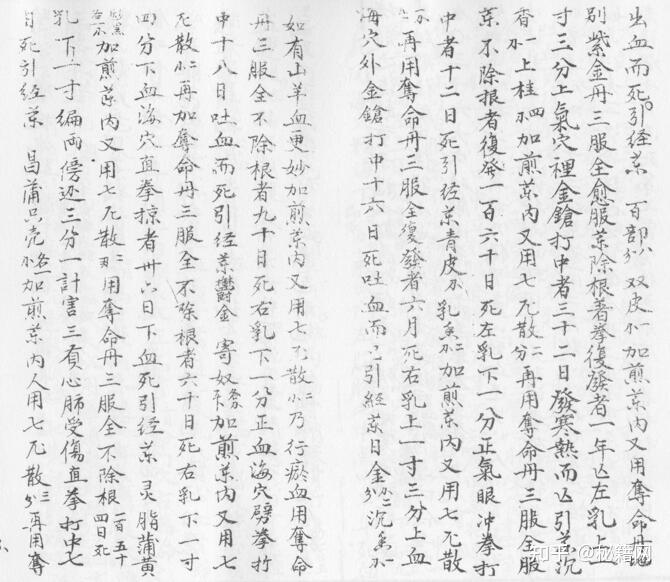 出血而死引经药 百部 双皮 加煎药内又用奪命丹
别紫金丹三服全愈服药除根著拳復發者一年亡左乳上
寸三分上氣穴裡金鎗打中者三十二日發寒熱而亡引药沉
香 上桂 加煎药内又用七厘散 二分再用奪命丹三服全服
药不除根者復發一百六十日死左乳下一分正氣眼冲拳打
中者十二日死引经药青皮 乳香 加煎药内又用七厘散
再用奪命丹三服全復發者六月死右乳上一寸三分上血
海穴外金鎗打中十六日死吐血而亡引经药日金 沉香
如有山羊血更妙加煎药内又用七厘散 乃行瘀血用奪命
丹三服全不除根者九十日死右乳下一分正血海穴劈拳打
中十八日吐血而死引经药鬱金 寄奴 加煎药内又用七
厘散 再加奪命丹三服全不除根者六十日死右乳下一寸
四分下血海穴直拳掠者卅六日下血死引经药灵脂蒲黄
加煎药内又用七厘散 用奪命丹三服全不除根一百五十四日死
乳下一寸偏両傍边三分一計害三頁心肺受傷直拳打中七
日死引经药 昌蒲只壳 加煎药内人用七厘散 三分再用奪
知乎 @秘籍网